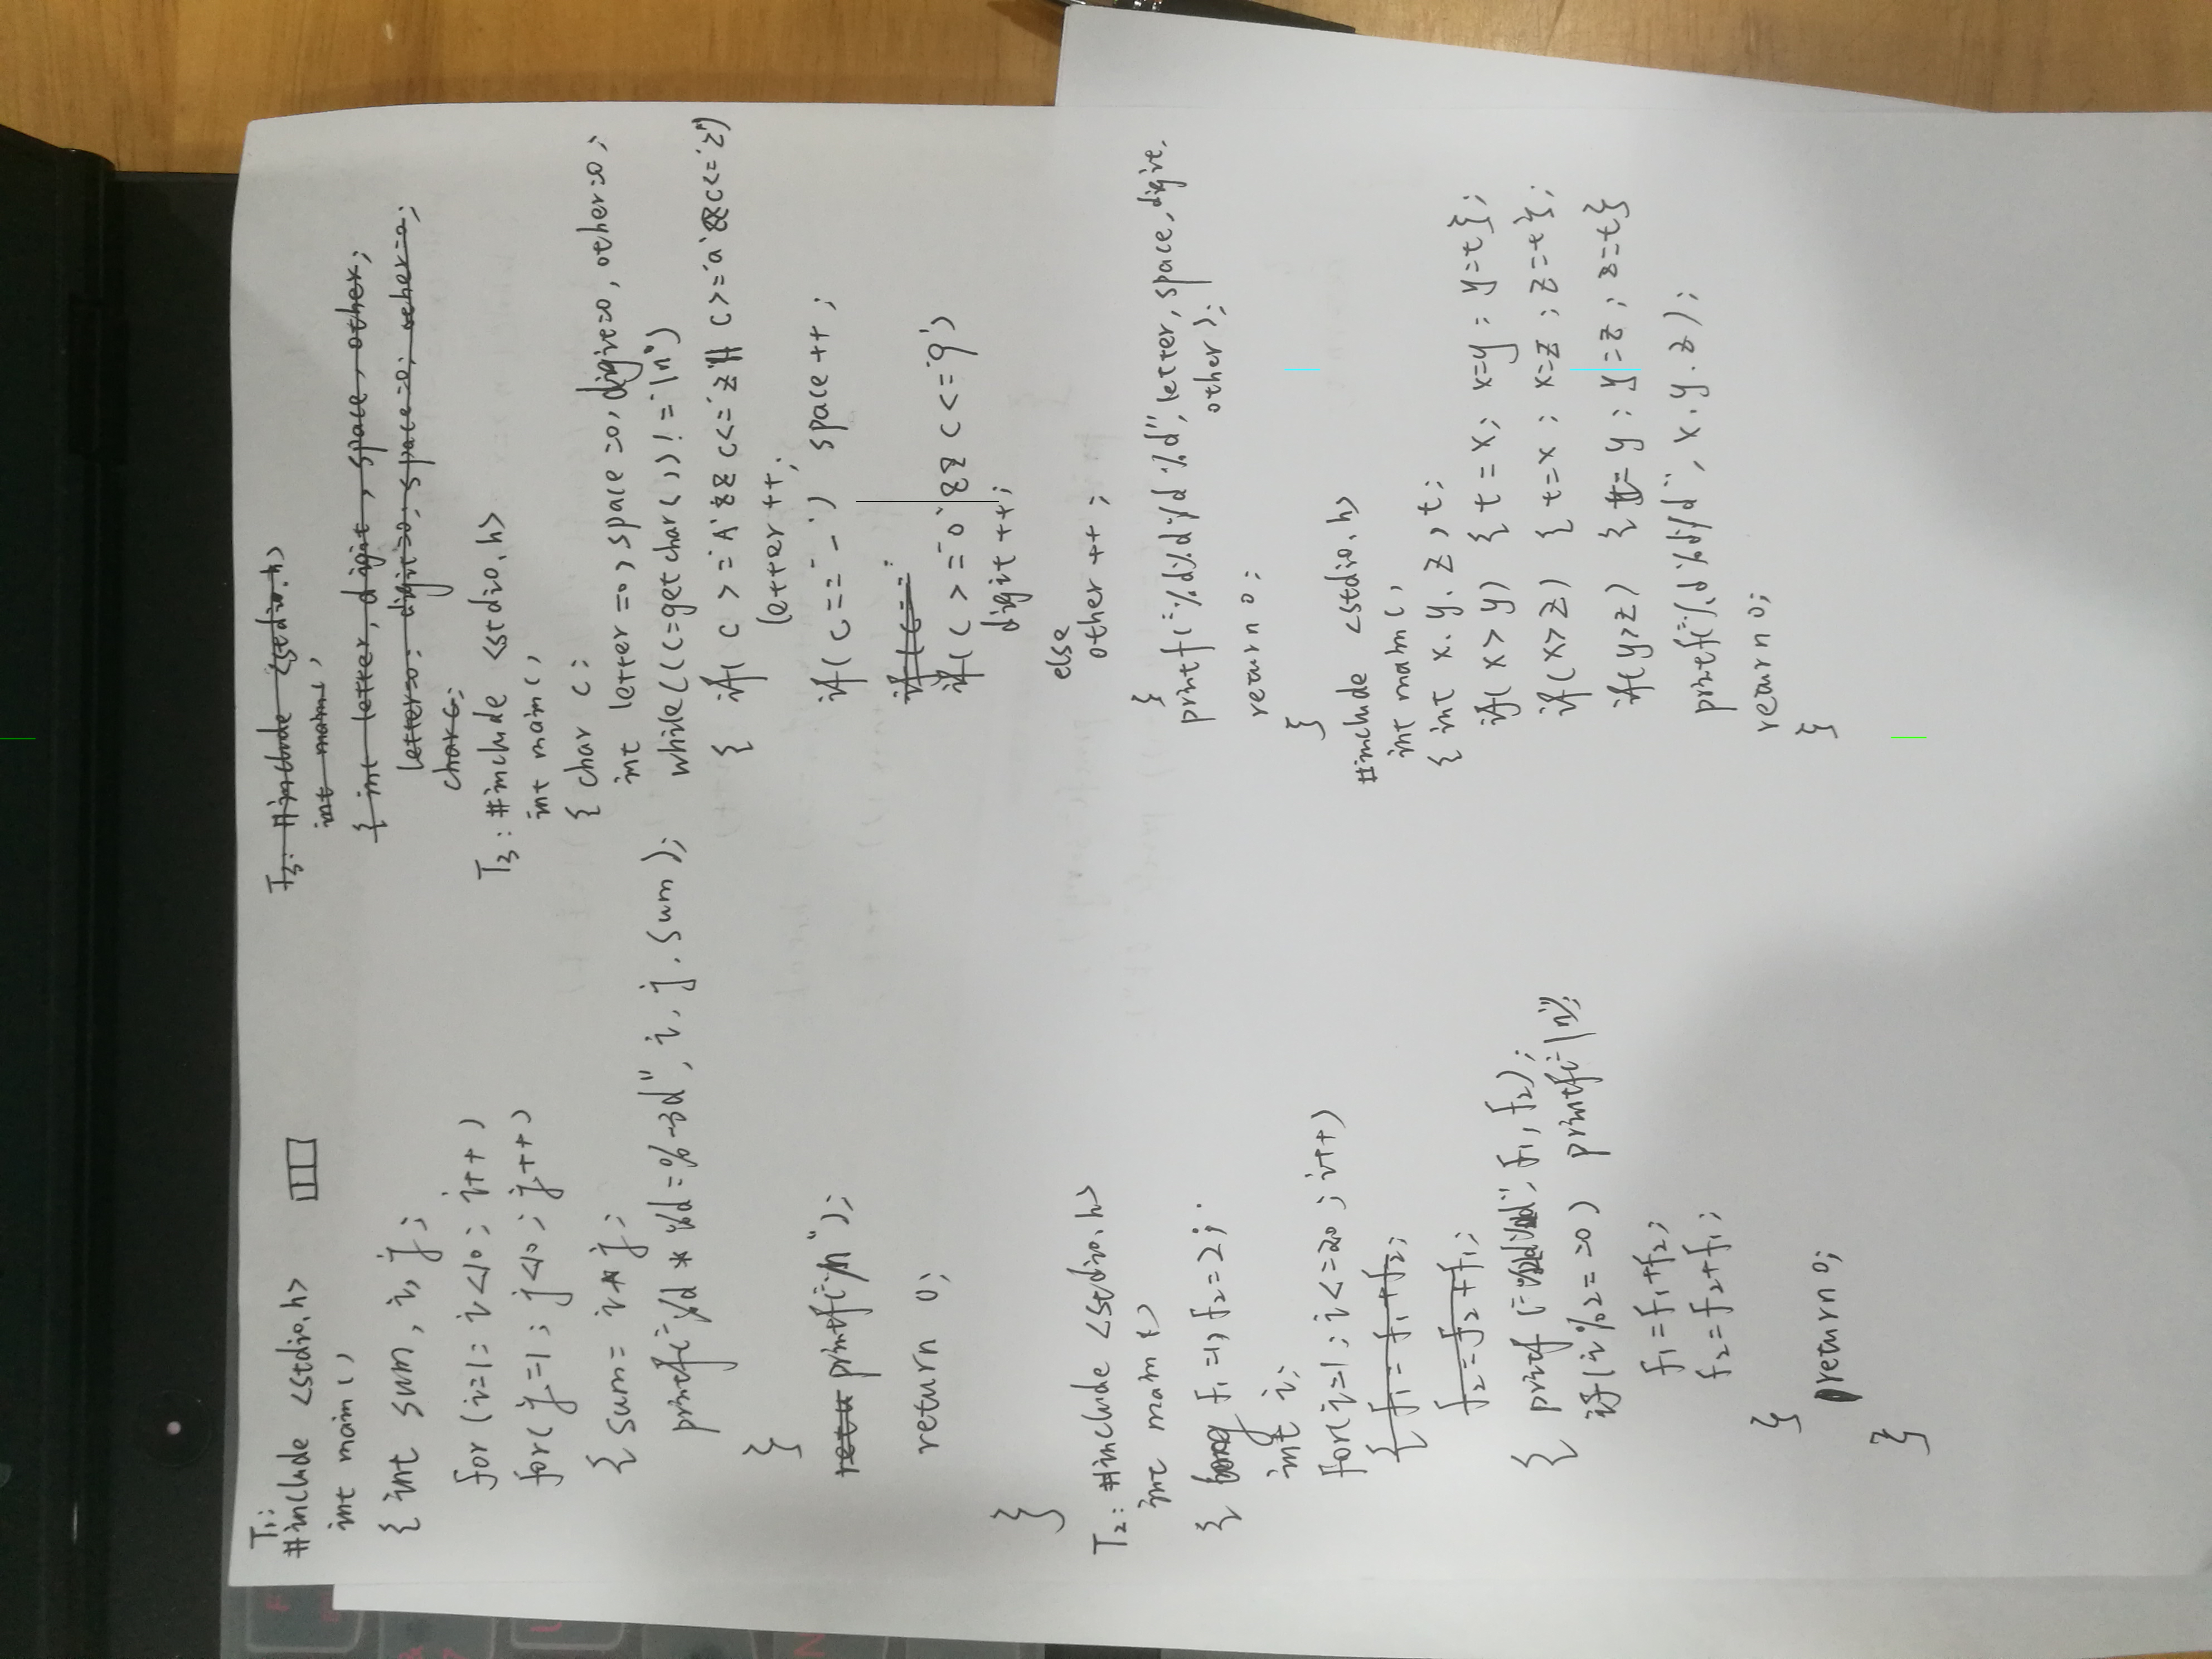 T1:
#include <stdio.h>
int main()
{ int sum, i, j;
for (i=1; i<10; i++)
for( j=1; j<10; j++)
{ sum= i*j;
printf("%d*%d=%-3d", i, j, sum);
}
retu printf("\n");
return 0;
}
T2: #include <stdio.h>
int main()
{ long f1=1, f2=2;
int i;
for(i=1; i<=20; i++)
{ f1=f1+f2;
f2=f2+f1;
{ printf ("%ld%ld", f1, f2);
if(i%2==0) printf("\n");
f1=f1+f2;
f2=f2+f1;
}
return 0;
}
T3: #include <stdio.h>
int main()
{ int letter, digit, space, other;
letter=0; digit=0; space=0; other=0;
char c;
T3: #include <stdio.h>
int main()
{ char c;
int letter=0, space=0, digit=0, other=0;
while((c=getchar())!='\n')
{ if( c>='A'&&c<='Z'|| c>='a'&&c<='z')
letter++;
if( c==' ') space++;
if(c==
if(c>='0'&&c<='9')
digit++;
else
other++;
}
printf("%d%d%d%d", letter, space, digit,
other);
return 0;
}
#include <stdio.h>
int main()
{ int x, y, z, t;
if(x>y) {t=x; x=y; y=t};
if(x>z) {t=x; x=z; z=t};
if(y>z) {t=y; y=z; z=t}
printf("%d%d%d", x, y, z);
return 0;
}